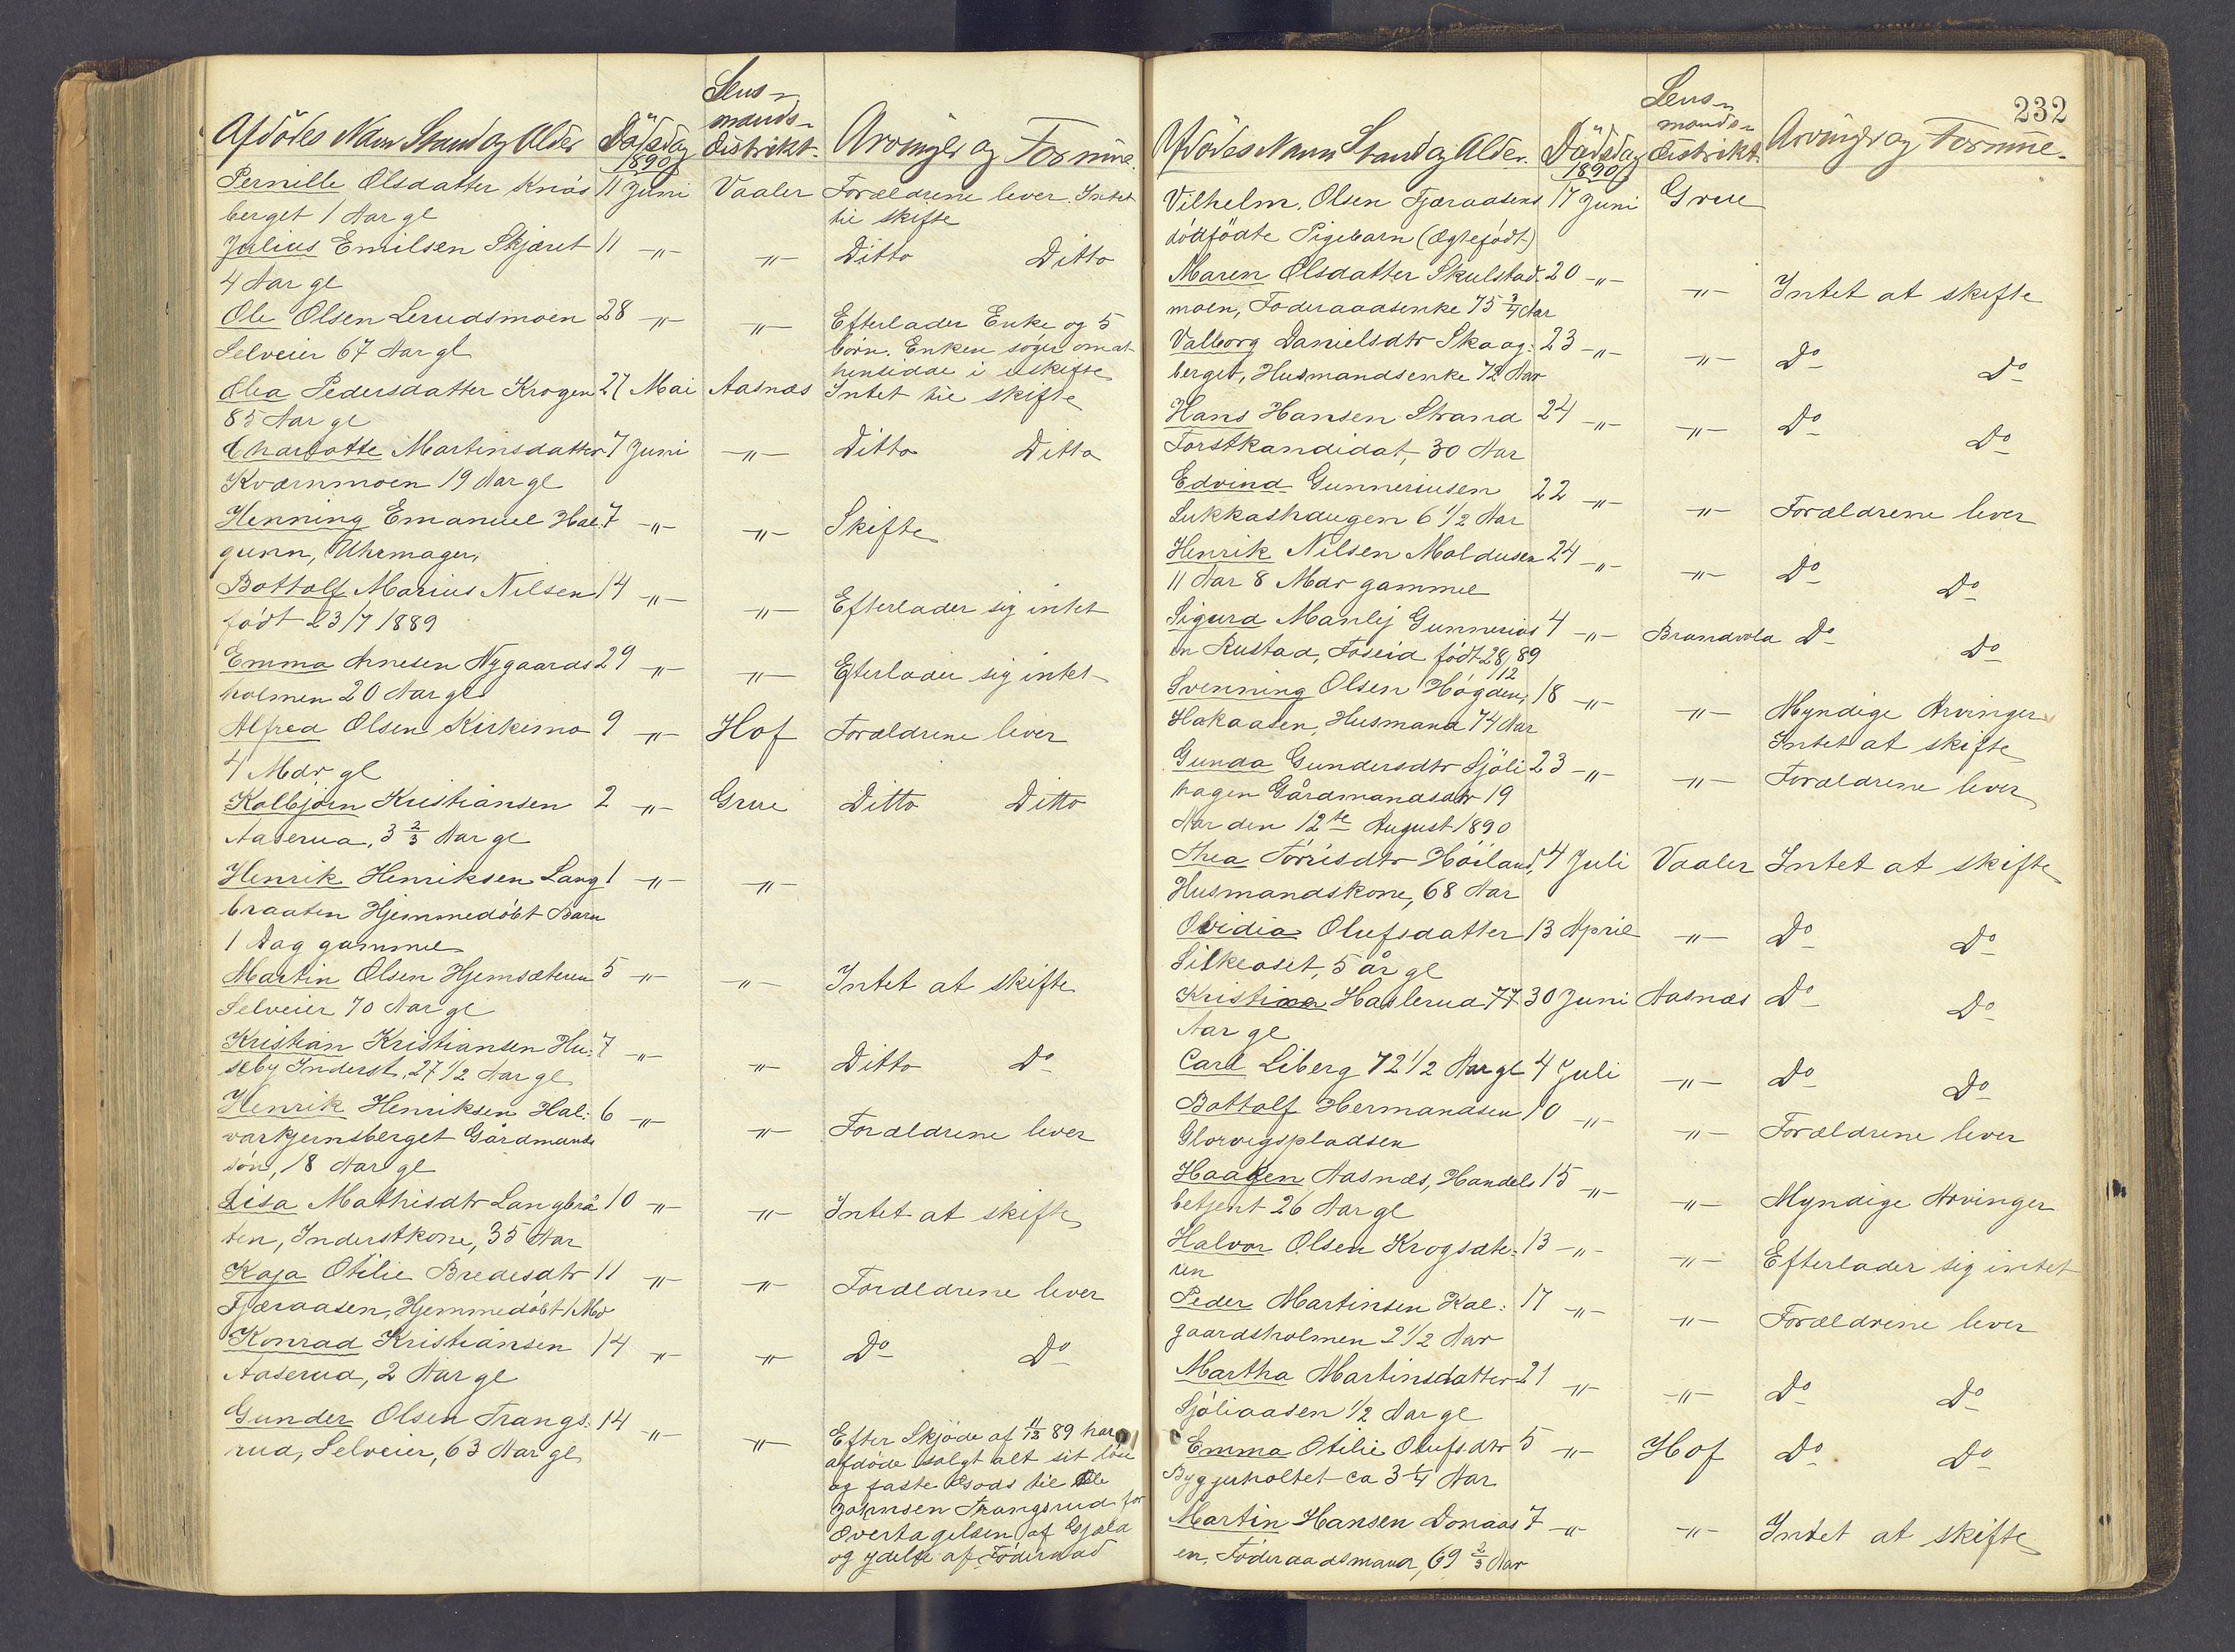 Afdödes Navn Stand og Alder
Dödsdag
1890
Lens-
mands-
distrikt.
Arvinger og Formue.
Pernille Olsdatter Knös 11 Juni Vaaler Forældrene lever. Intet
berget 1 Aar gl til skifte
Julius Emilsen Skjæret 11 -"- -"- Ditto Ditto
4 Aar gl
Ole Olsen Lerudsmoen 28 -"- -"- Efterlader Enke og 5
Selveier 67 Aar gl börn. Enken söger om at
hensidde i uskifte
Olea Pedersdatter Krogen 27 Mai Aasnæs Intet til skifte
85 Aar gl
Charlotte Martinsdatter 7 Juni -"- Ditto Ditto
Kværnmoen 19 Aar gl
Henning Emanuel Hal- 7 -"- -"- Skifte
gunn, Uhrmager,
Bottolf Marius Nilsen 14 -"- -"- Efterlader sig intet
födt 23/7 1889
Emma Arnesen Nygaards 29 -"- -"- Efterlader sig intet
holmen 20 Aar gl
Alfred Olsen Kirkemo 9 -"- Hof Forældrene lever
4 Mdr gl
Kolbjörn Kristiansen 2 -"- Grue Ditto Ditto
Aaserud, 3 2/3 Aar gl
Henrik Henriksen Lang 1 -"- -"-
braaten Hjemmedöbt Barn
1 Dag gammel
Martin Olsen Hjemsæteren 5 -"- -"- Intet at skifte
Selveier 70 Aar gl
Kristian Kristiansen Hu: 7 -"- -"- Ditto Do
seby Inderst, 27 1/2 Aar gl
Henrik Henriksen Hal: 6 -"- -"- Forældrene lever
varkjernsberget Gårdmands
sön, 18 Aar gl
Lisa Mathisdtr Langbrå 10 -"- -"- Intet at skifte
ten, Inderstkone, 35 Aar
Kaja Otilie Bredesdtr 11 -"- -"- Forældrene lever
Fjæraasen, Hjemmedöbt 1 Md
Konrad Kristiansen 14 -"- -"- Do Do
Aaserud, 2 Aar gl
Gunder Olsen Trangs: 14 -"- -"- Efter Skjöde af 11/12 89 har
rud, Selveier, 63 Aar gl afdöde solgt alt sit löse
og faste Gods til Ole
Johnsen Trangsrud for
Overtagelsen af Gjæld
og ydelse af Föderaad
232
Afdödes Navn Stand og Alder.
Dödsdag
1890
Lens-
mands-
distrikt.
Arvinger og Formue.
Vilhelm. Olsen Fjæraasens 17 Juni Grue
dödfödte Pigebarn (Ægtefödt)
Maren Olsdatter Skulstad- 20 -"- -"- Intet at skifte
moen, Föderaadsenke 75 3/4 Aar
Valborg Danielsdtr Skaag: 23 -"- -"- Do Do
berget, Husmandsenke 72 Aar
Hans Hansen Strand 24 -"- -"- Do Do
Forstkandidat, 30 Aar
Edvind Gunneriusen 22 -"- -"- Forældrene lever
Sukkashaugen 6 1/2 Aar
Henrik Nilsen Moldusen 24 -"- -"- Do Do
11 Aar 8 Mdr gammel
Sigurd Manlej Gunnerius 4 -"- Brandvold Do Do
en Rustad, Foseid födt 28/12 89
Svenning Olsen Högden, 18 -"- -"- Myndige Arvinger
Hakaasen, Husmand 74 Aar Intet at skifte
Gunda Gundersdtr Sjöli 23 -"- -"- Forældrene lever
hagen Gårdmandsdtr 19
Aar den 12te August 1890
Thea Törrisdtr Höiland, 4 Juli Vaaler Intet at skifte
Husmandskone, 68 Aar
Ovidia Olufsdatter 13 April -"- Do Do
Silkeoset, 5 år gl
Kristian Haslerud 77 30 Juni Aasnæs Do Do
Aar gl
Carl Liberg 72 1/2 Aar gl 4 Juli -"- Do Do
Bottolf Hermandsen 10 -"- -"- Forældrene lever
Glorvigspladsen
Haagen Aasnæs, Handels 15 -"- -"- Myndige Arvinger
betjent 26 Aar gl
Halvor Olsen Krogsæte: 13 -"- -"- Efterlader sig intet
ren
Peder Martinsen Kal: 17 -"- -"- Forældrene lever
gaardsholmen 2 1/2 Aar
Martha Martinsdatter 21 -"- -"- Do Do
Sjöliaasen 1/2 Aar gl
Emma Otilie Olufsdtr 5 -"- Hof Do Do
Byggjuholtet ca 3 1/4 Aar
Martin Hansen Donaas 7 -"- -"- Intet at skifte
en, Föderaadsmand, 69 2/3 Aar